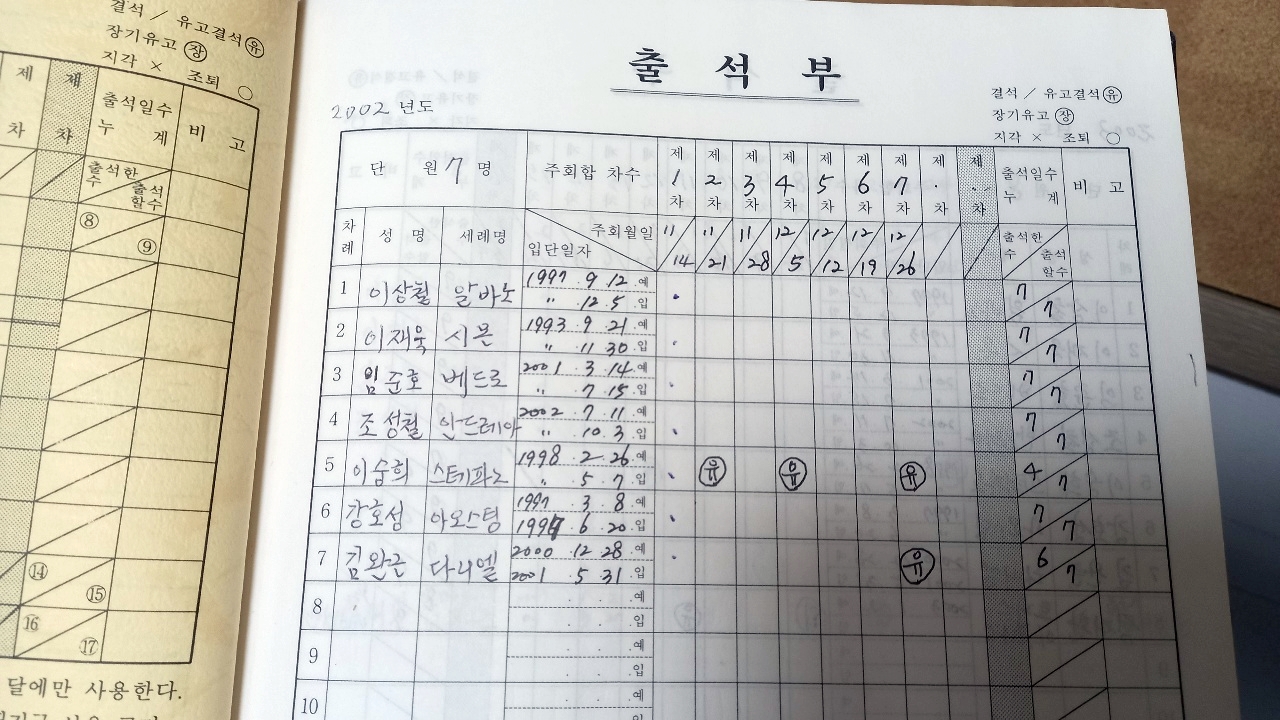 결석 / 유고결석 ㊌
장기유고 장
지각 × 조퇴 ○
제 제 출석일수 비 고
차 차 누 계
출석한 수 출석할수
⑧ ⑨
⑭ ⑮
⑯ ⑰
달에만 사용한다.
출 석 부
2002 년도
결석 / 유고결석 유
장기유고 장
지각 × 조퇴 ○
단 원 7 명 주회합 차수 제1차 제2차 제3차 제4차 제5차 제6차 제7차 제 . 차 제 . 차 출석일수 누 계 비 고
차례 성 명 세례명 주회월일 입단일자 11/14 11/21 11/28 12/5 12/12 12/19 12/26 출석한수 출석할수
1 이상철 알바노 1997 . 9 . 12 . 예 7
〃 12 . 5 . 입 7
2 이재욱 시몬 1993 . 9 . 21 . 예 7
〃 11 . 30 . 입 7
3 임준호 베드로 2001 . 3 . 14 . 예 7
〃 7 . 15 . 입 7
4 조성철 안드레아 2002 . 7 . 11 . 예 7
〃 10 . 3 . 입 7
5 이숨희 스테파노 1998 . 2 . 26 . 예 유 유 유 4
〃 5 . 7 . 입 7
6 강호섬 아오스팅 1997 . 3 . 8 . 예 7
1997 . 6 . 20 . 입 7
7 김완근 다니엘 2000 . 12 . 28 . 예 유 6
2001 . 5 . 31 . 입 7
8 . . . 예
. . . 입
9 . . . 예
. . . 입
10 . . . 예